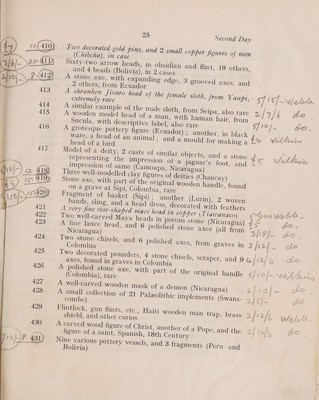 25
Second Day
10 (410) Two decorated gold pins, and 2 small copper figures of men
(Chibcha), in case
7/6/- 20 (411) Sixty-two arrow heads, in obsidian and flint, 19 others,
and 4 beads (Bolivia), in 2 cases
2/10/- 8 (412) A stone axe, with expanding edge, 3 grooved axes, and
2 others, from Ecuador
413 A shrunken Jivaro head of the female sloth, from Yaupi,
extremely rare 5/15/-
414 A similar example of the male sloth, from Seipa, also rare 2/7/6 do.
415 A wooden model head of a man, with human hair, from
Sucula, with descriptive label, also rare 5/10/- do.
416 A grotesque pottery figure (Ecuador); another, in black
ware, a head of an animal; and a mould for making a
head of a bird £4
417 Model of a deity, 2 casts of similar objects, and a stone
representing the impression of a jaguar's foot, and
impression of same (Camoapa, Nicaragua) £5
12 (418) Three well-modelled clay figures of deities (Chancay)
(419) Stone axe, with part of the original wooden handle, found
on a grave at Sipi, Colombia, rare
(420) Fragment of basket (Sipi); another (Lurin), 2 woven
bands, sling, and a head dress, decorated with feathers
421 A very fine star-shaped mace head in copper (Tiawanaco)
422 Two well-carved Maya heads in porous stone (Nicaragua) do.
423 A fine lance head, and 6 polished stone axes (all from
Nicaragua) 3/8/- do.
424 Two stone chisels, and 6 polished axes, from graves in
Colombia 3/12/- do
425 Two decorated pounders, 4 stone chisels, scraper, and 9
axes, found in graves in Colombia 4/12/6 do
426 A polished stone axe, with part of the original handle
(Colombia), rare 5/10/-
427 A well-carved wooden mask of a demon (Nicaragua) 2/10/- do
428 A small collection of 21 Palæolithic implements (Swans-
combe) 2/5/- do
429 Flintlock, gun flints, etc., Haiti wooden man trap, brass
shield, and other curios 2/12/6
430 A carved wood figure of Christ, another of a Pope, and the
figure of a saint, Spanish, 18th Century 2/12/6 do.
8 (431) Nine various pottery vessels, and 3 fragments (Peru and
Bolivia)